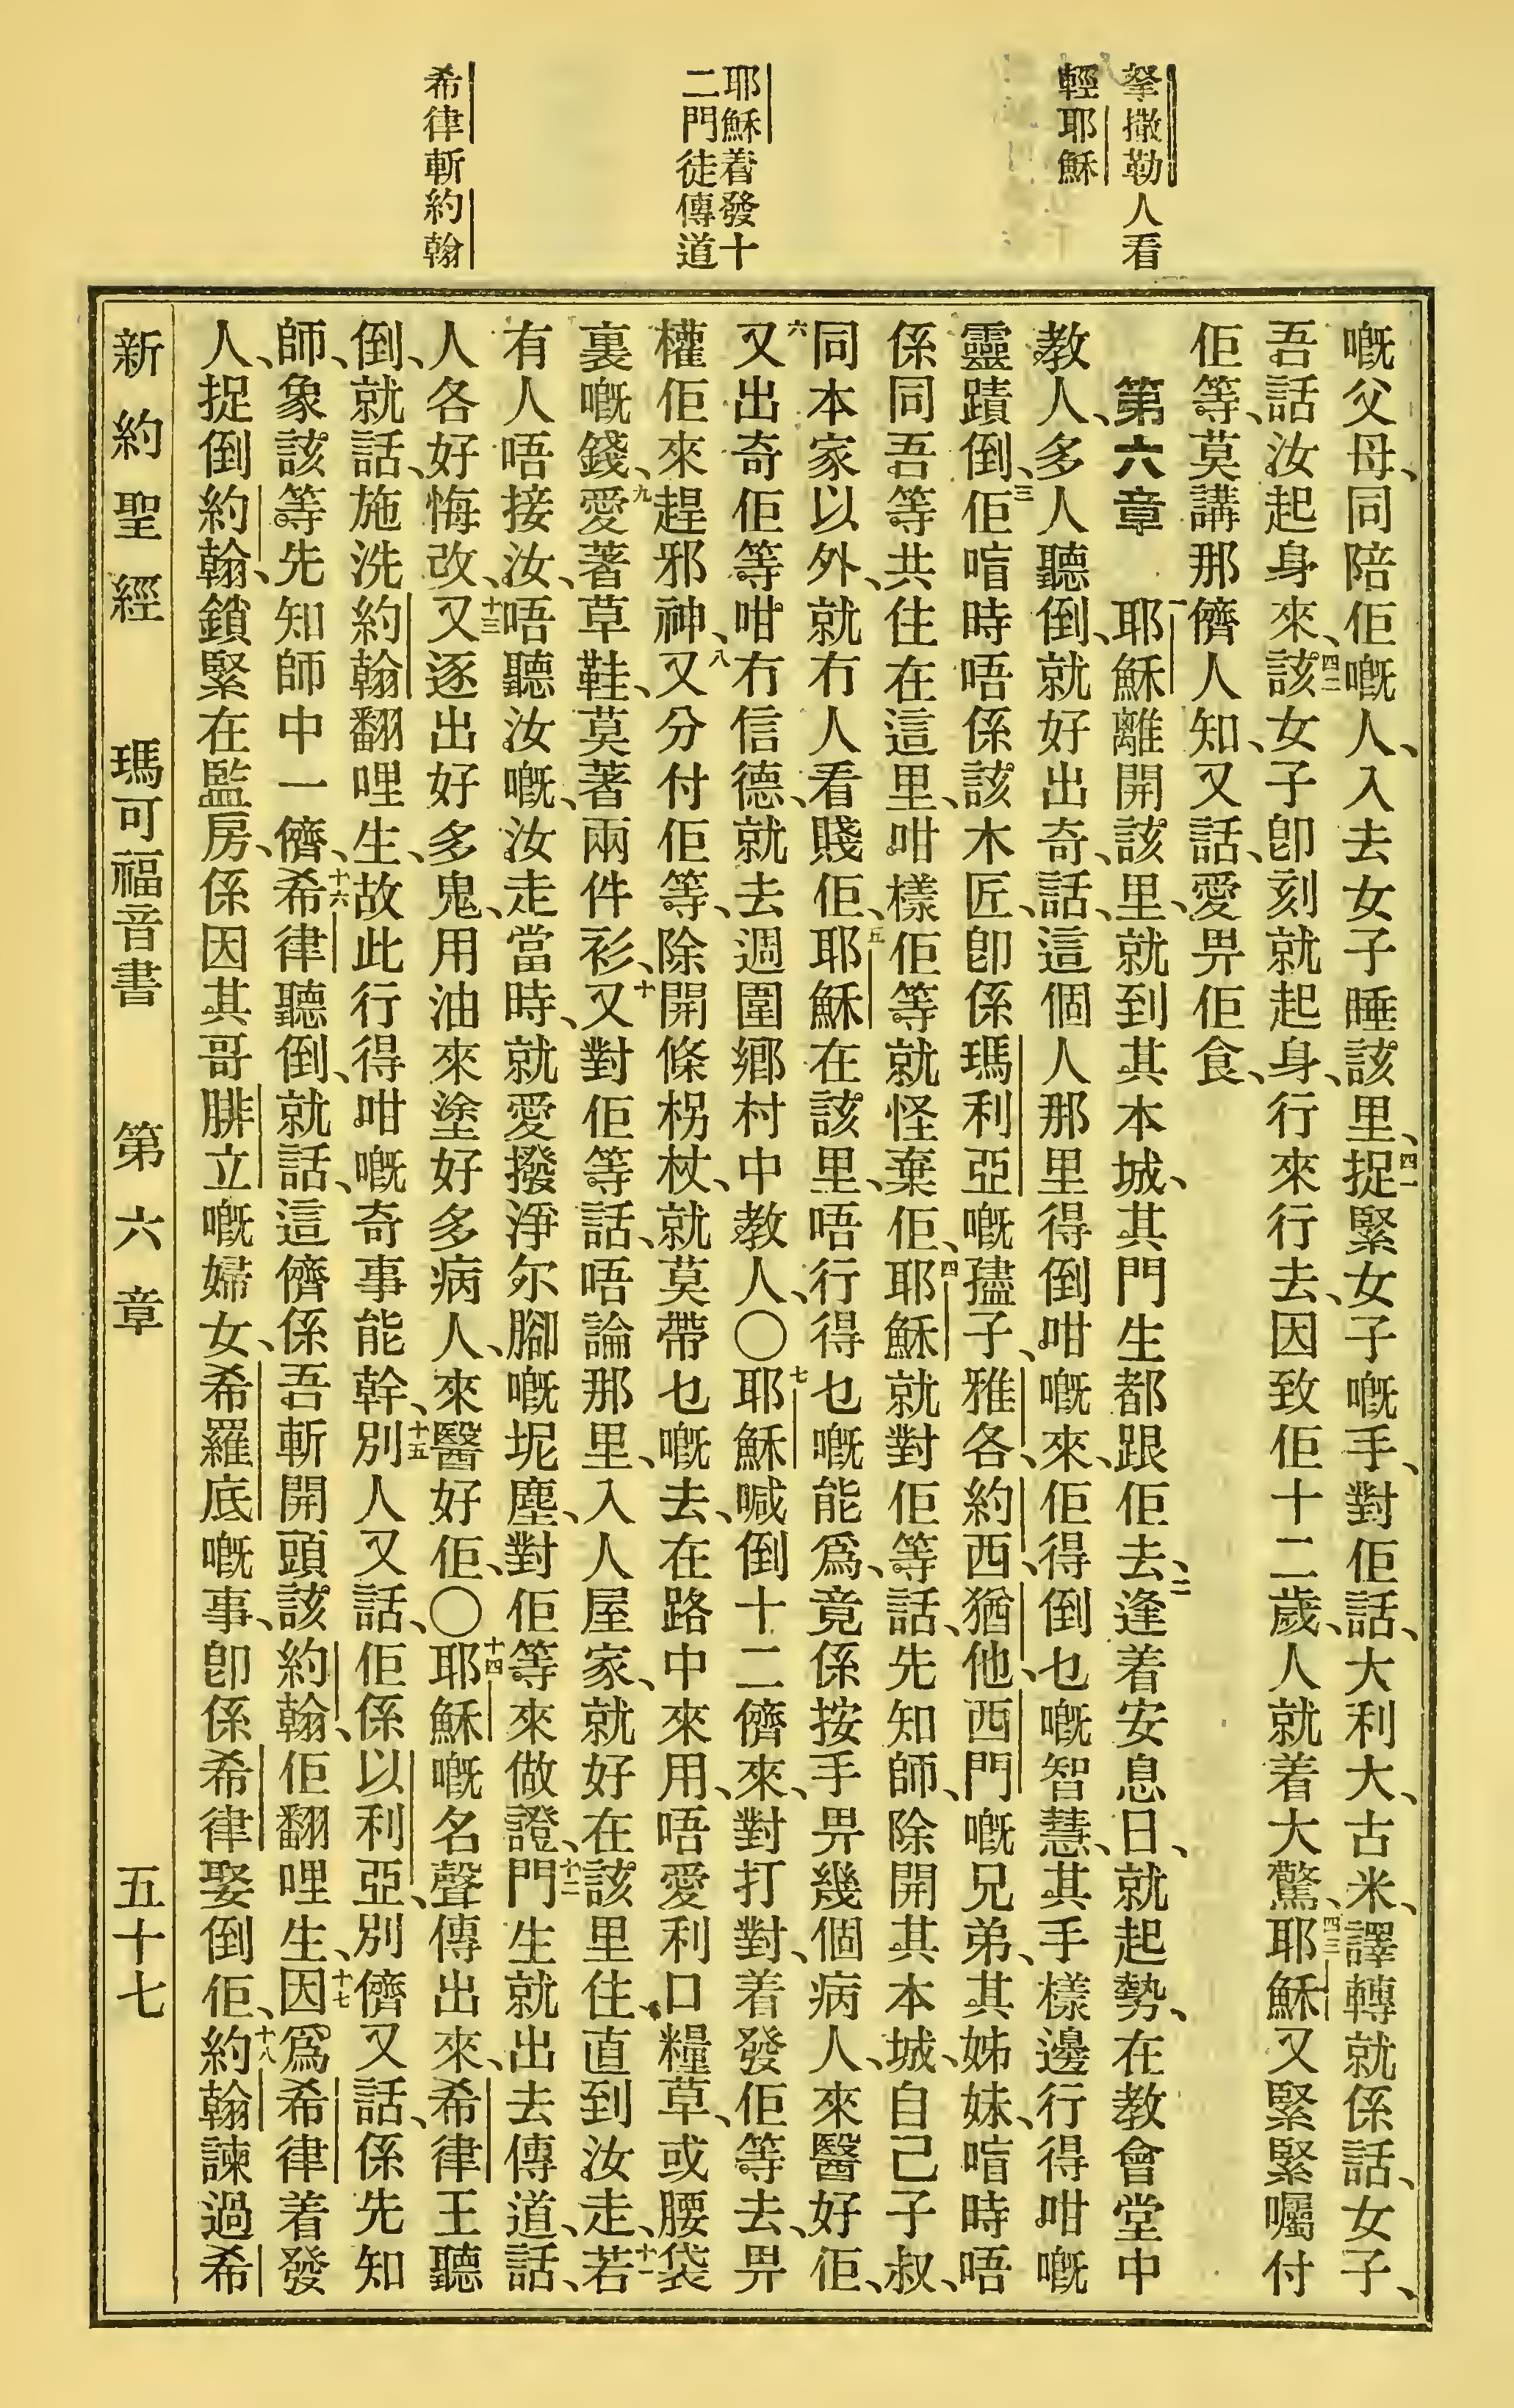 拏撒勒人看
輕耶穌
耶穌着發十
二門徒傳道
希律斬約翰
嘅父母、同陪佢嘅人、入去女子睡該里、四一捉緊女子嘅手、對佢話、大利大、古米、譯轉就係話、女子、
吾話汝起身來、四二該女子卽刻就起身、行來行去、因致佢十二歲、人就着大驚、四三耶穌又緊緊囑付
佢等、莫講那儕人知、又話、愛畀佢食、
第六章 一耶穌離開該里、就到其本城、其門生都跟佢去、二逢着安息日、就起勢、在教會堂中
教人、多人聽倒、就好出奇、話、這個人那里得倒咁嘅來、佢得倒乜嘅智慧、其手樣邊行得咁嘅
靈蹟倒、三佢喑時唔係該木匠、卽係瑪利亞嘅孻子、雅各、約西、猶他、西門嘅兄弟、其姊妹、喑時唔
係同吾等共住在這里、咁樣佢等就怪棄佢、四耶穌就對佢等話、先知師、除開其本城、自己子叔、
同本家以外、就冇人看賤佢、五耶穌在該里、唔行得乜嘅能爲、竟係按手畀幾個病人、來醫好佢、
六又出奇佢等咁冇信德、就去週圍鄉村中教人、〇七耶穌喊倒十二儕來、對打對、着發佢等去、畀
權佢來趕邪神、八又分付佢等、除開條柺杖、就莫帶乜嘅去、在路中來用、唔愛利口糧草、或腰袋
裏嘅錢、九愛著草鞋、莫著兩件衫、十又對佢等話、唔論那里、入人屋家、就好在該里住、直到汝走、十一若
有人唔接汝、唔聽汝嘅、汝走當時、就愛撥淨尔腳嘅坭塵、對佢等來做證、十二門生就出去傳道、話、
人各好悔改、十三又逐出好多鬼、用油來塗好多病人、來醫好佢、〇十四耶穌嘅名聲傳出來、希律王聽
倒、就話、施洗約翰翻哩生、故此行得咁嘅奇事能幹、十五別人又話、佢係以利亞、別儕又話、係先知
師、象該等先知師中一儕、十六希律聽倒、就話、這儕係吾斬開頭該約翰、佢翻哩生、十七因爲希律着發
人、捉倒約翰、鎖緊在監房、係因其哥腓立嘅婦女、希羅底嘅事、卽係希律娶倒佢、十八約翰諫過希
新約聖經 瑪可福音書 第六章 五十七